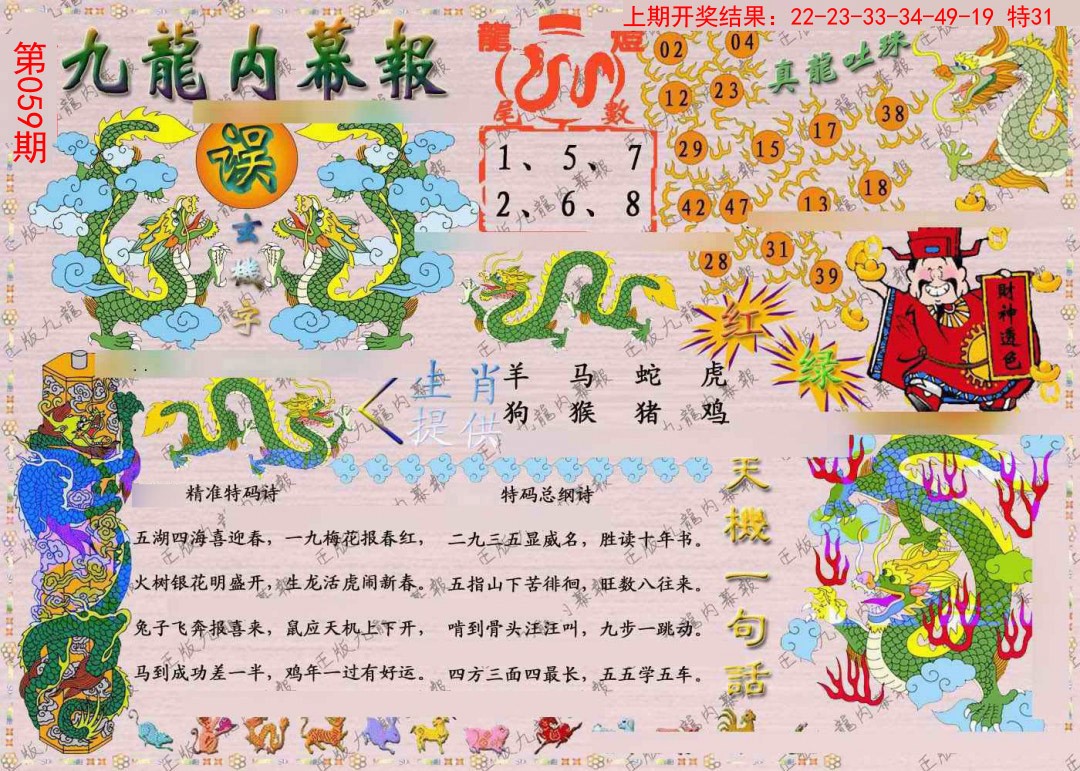 上期开奖结果：22-23-33-34-49-19 特31
第059期
九龍内幕報
龍 燈
尾 數
1、5、7
2、6、8
真龍吐珠
02 04
12 23
29 15 17 38
42 47 13 18
28 31 39
误
玄機字
红
绿
财神透色
生肖提供
羊 马 蛇 虎
狗 猴 猪 鸡
精准特码诗
五湖四海喜迎春，一九梅花报春红，
火树银花明盛开，生龙活虎闹新春。
兔子飞奔报喜来，鼠应天机上下开，
马到成功差一半，鸡年一过有好运。
特码总纲诗
二九三五显威名，胜读十年书。
五指山下苦徘徊，旺数八往来。
啃到骨头汪汪叫，九步一跳动。
四方三面四最长，五五学五车。
天機一句話
正版九龍内幕報